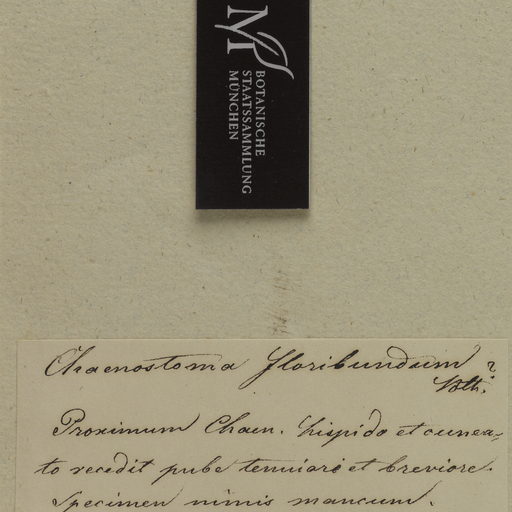 M
BOTANISCHE
STAATSSAMMLUNG
MÜNCHEN
Chaenostoma floribundum
Bth. ?
Proximum Chaen. hispido et cunea-
to recedit pube tenuiori et breviore.
Specimen nimis mancum.